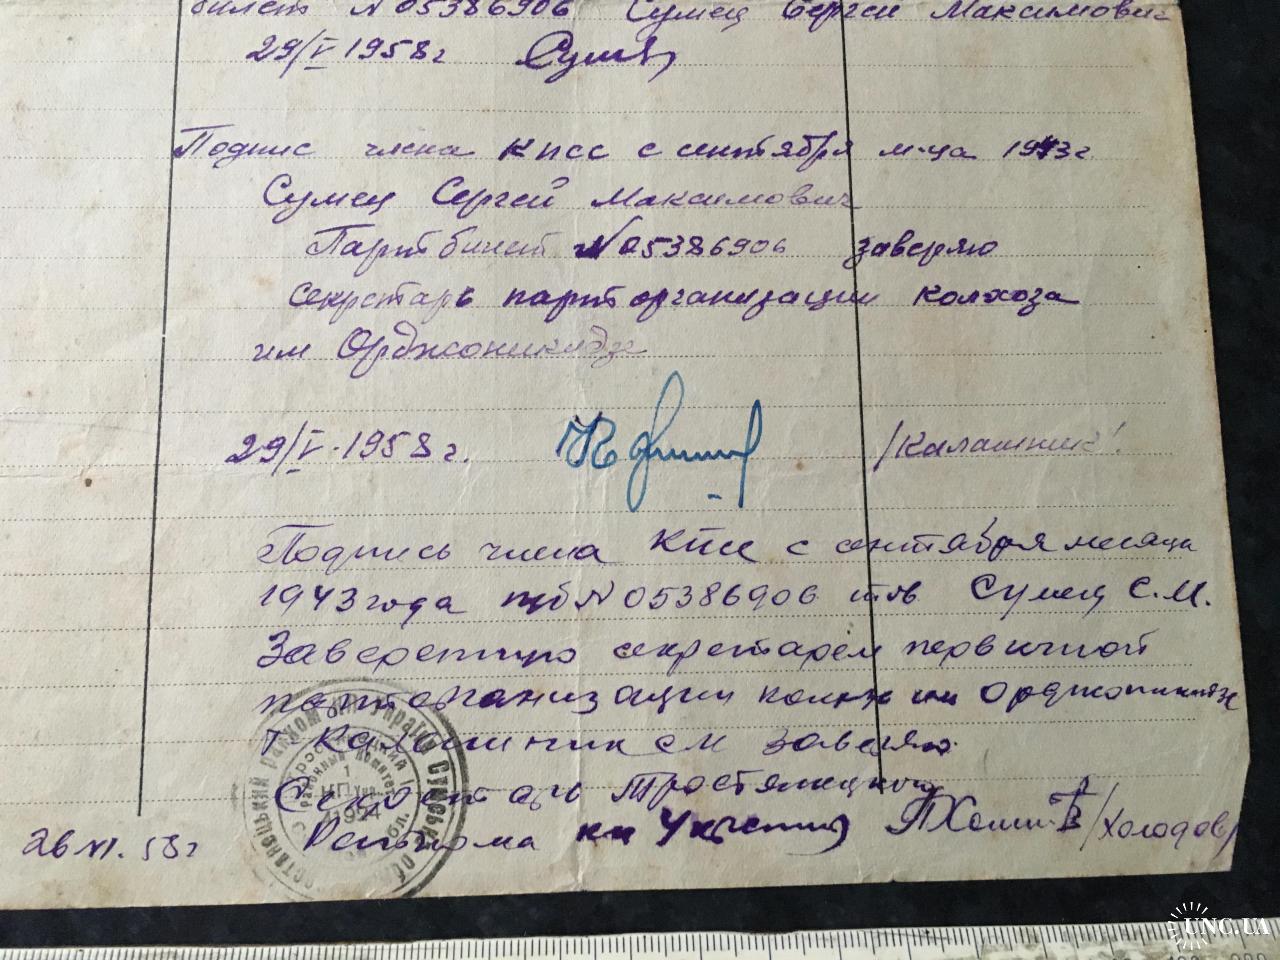 билет N 05386906 Сумец Сергей Максимович
29/V 1958г Сумец
Подпис члена КПСС с сентября м-ца 1943г
Сумец Сергей Максимович
Партбилет N 05386906 заверяю
секретарь парторганизации колхоза
им Орджоникидзе
29/V-1958г. /Калашник/
Подпись члена КПСС с сентября месяца
1943 года п/б N 05386906 тов Сумец С.М.
Заверенную секретарем первичной
парторганизации колхоза им Орджоникидзе
т Калашником заверяю.
Секретарь Тростянецкого
Райкома КП Украины /Холодов/
26 VI. 58г
райком КП України Сумської обл
районный комитет
1
1954
UNC.UA